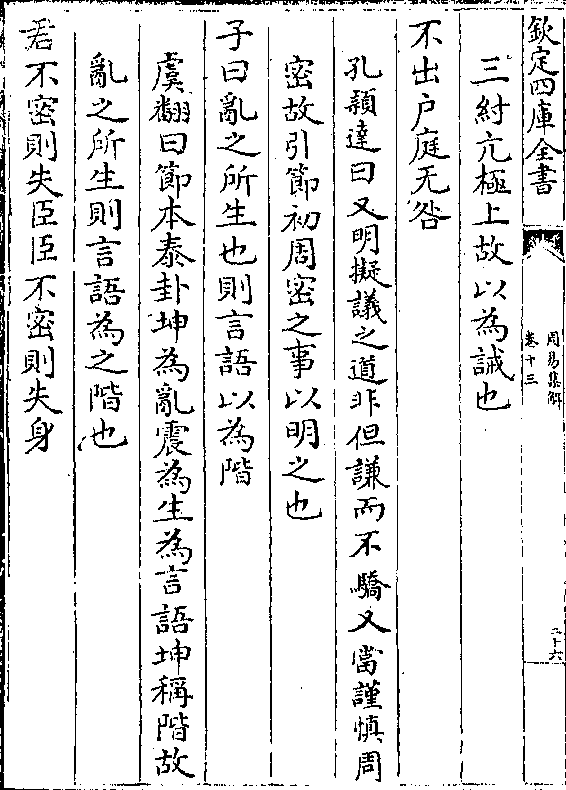 欽定四庫全書
周易集解
卷十三
二十六
三紂亢極上故以為誡也
不出户庭无咎
孔穎達曰又明擬議之道非但謙而不驕又當謹慎周
密故引節初周密之事以明之也
子曰亂之所生也則言語以為階
虞翻曰節本泰卦坤為亂震為生為言語坤稱階故
亂之所生則言語為之階也
君不密則失臣臣不密則失身